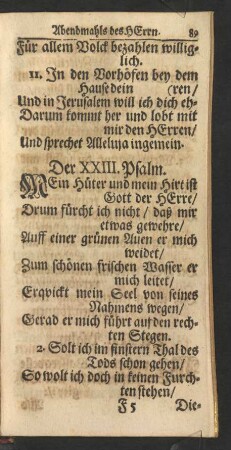 Abendmahls des HErrn. 89
Für allem Volck bezahlen willig-
lich.
11. In den Vorhöfen bey dem
Hause dein (ren/
Und in Jerusalem will ich dich eh-
Darum kommt her und lobt mit
mir den HErren/
Und sprechet Alleluja ingemein.
Der XXIII. Psalm.
MEin Hüter und mein Hirt ist
Gott der HErre/
Drum fürcht ich nicht/ daß mir
etwas gewehre/
Auff einer grünen Auen er mich
weidet/
Zum schönen frischen Wasser er
mich leitet/
Erqvickt mein Seel von seines
Nahmens wegen/
Gerad er mich führt auf den rech-
ten Stegen.
2. Solt ich im finstern Thal des
Tods schon gehen/
So wolt ich doch in keinen Furch-
ten stehen/
F 5 Die-